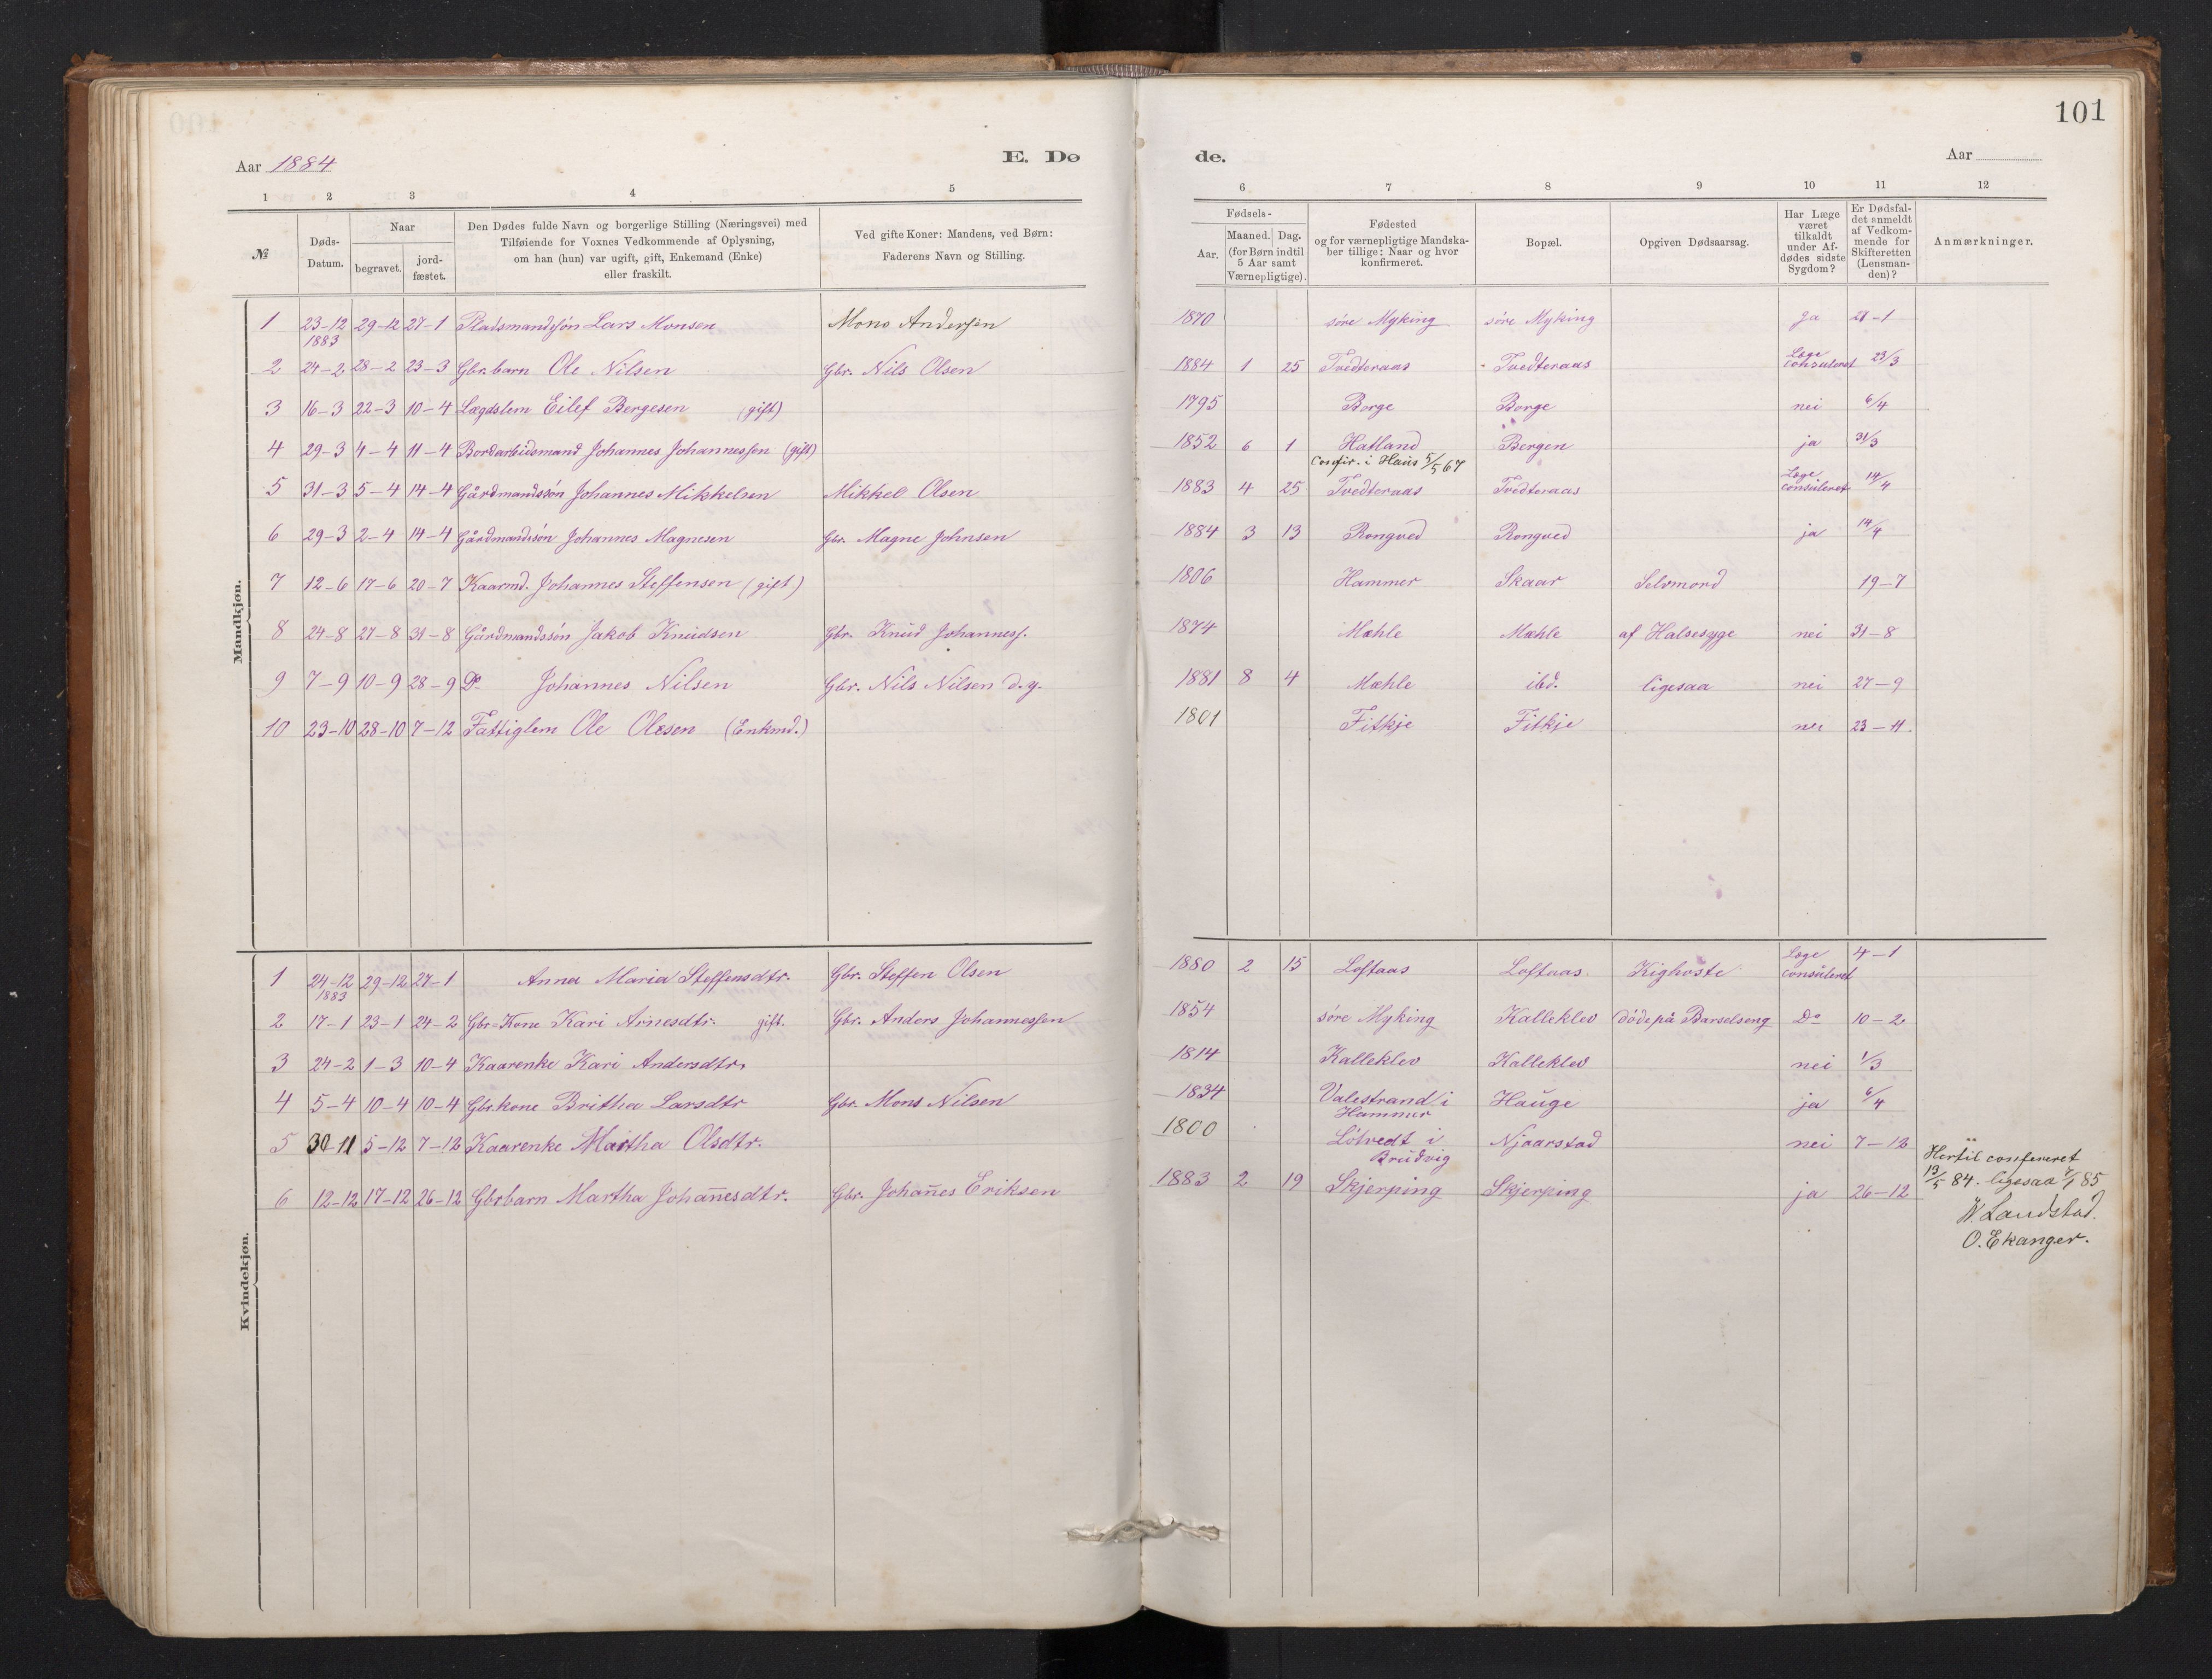 101
Aar 1884 E. Dø de. Aar
1 2 3 4 5 6 7 8 9 10 11 12
№ Døds-Datum. Naar begravet. jord-fæstet. Den Dødes fulde Navn og borgerlige Stilling (Næringsvei) med Tilføiende for Voxnes Vedkommende af Oplysning, om han (hun) var ugift, gift, Enkemand (Enke) eller fraskilt. Ved gifte Koner: Mandens, ved Børn: Faderens Navn og Stilling. Fødsels- Aar. Maaned. Dag. (for Børn indtil 5 Aar samt Værnepligtige). Fødested og for værnepligtige Mandskaber tillige: Naar og hvor konfirmeret. Bopæl. Opgiven Dødsaarsag. Har Læge været tilkaldt under Afdødes sidste Sygdom? Er Dødsfaldet anmeldt af Vedkommende for Skifteretten (Lensmanden)? Anmærkninger.
Mandkjøn.
1 23-12 1883 29-12 27-1 Pladsmandssön Lars Monsen Mons Andersen 1870 søre Myking søre Myking Ja 21-1
2 24-2 28-2 23-3 Gbr.barn Ole Nilsen Gbr. Nils Olsen 1884 1 25 Tvedteraas Tvedteraas Læge consuleret 23/3
3 16-3 22-3 10-4 Lægdslem Eilef Bergesen (gift) 1795 Borge Borge nei 6/4
4 29-3 4-4 11-4 Bordarbidsmand Johannes Johannessen (gift) 1852 6 1 Hatland Confir. i Haus 5/5 67 Bergen ja 31/3
5 31-3 5-4 14-4 Gårdmandssön Johannes Mikkelsen Mikkel Olsen 1883 4 25 Tvedteraas Tvedteraas Læge consuleret 14/4
6 29-3 2-4 14-4 Gårdmandssön Johannes Magnesen Gbr. Magne Johnsen 1884 3 13 Rongved Rongved ja 14/4
7 12-6 17-6 20-7 Kaarmd. Johannes Steffensen (gift) 1806 Hammer Skaar Selvmord 19-7
8 24-8 27-8 31-8 Gårdmandssön Jakob Knudsen Gbr. Knud Johanness. 1874 Mæhle Mæhle af Halsesyge nei 31-8
9 7-9 10-9 28-9 Do Johannes Nilsen Gbr. Nils Nilsen d.y. 1881 8 4 Mæhle ibd. ligesaa nei 27-9
10 23-10 28-10 7-12 Fattiglem Ole Olesen (Enkmd.) 1801 Fitkje Fitkje nei 23-11.
Kvindekjøn.
1 24-12 1883 29-12 27-1 Anna Maria Steffensdtr. Gbr. Steffen Olsen 1880 2 15 Loftaas Loftaas. Kighoste Læge consuleret 4-1
2 17-1 23-1 24-2 Gbr-Kone Kari Arnesdtr. gift. Gbr. Anders Johannessen 1854 søre Myking Kalleklev döde på Barselseng Do 10-2
3 24-2 1-3 10-4 Kaarenke Kari Andersdtr. 1814 Kalleklev Kalleklev nei 1/3
4 5-4 10-4 10-4 Gbr.kone Britha Larsdtr Gbr. Mons Nilsen 1834 Valestrand i Hammer Hauge ja 6/4
5 30-11 5-12 7-12 Kaarenke Martha Olsdtr. 1800 Lötvedt i Brudvig Njaarstad nei 7-12
6 12-12 17-12 26-12 Gbrbarn Martha Johañesdtr. Gbr. Johañes Eriksen 1883 2 19 Skjerping Skjerping ja 26-12
Hertil confereret
13/5 84. ligesaa 85
W. Landstad.
O. Ekanger.